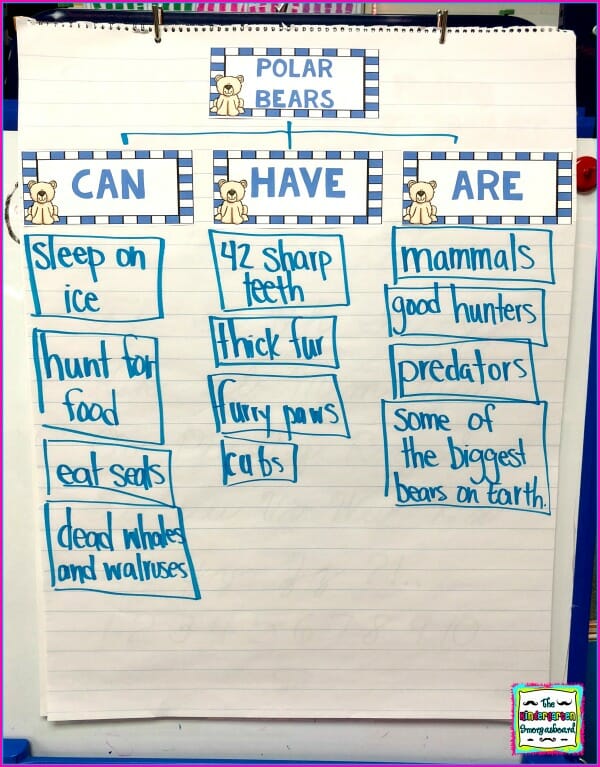 POLAR
BEARS
CAN
HAVE
ARE
sleep on
ice
hunt for
food
eat seals
dead whales
and walruses
42 sharp
teeth
thick fur
furry paws
cubs
mammals
good hunters
predators
some of
the biggest
bears on Earth.
The
Kindergarten
Smorgasboard